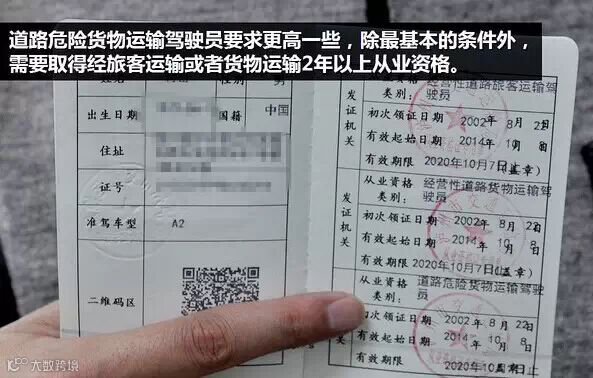 道路危险货物运输驾驶员要求更高一些，除最基本的条件外，
需要取得经旅客运输或者货物运输2年以上从业资格。
男
出生日期
国籍 中国
住址
证号
准驾车型 A2
二维码区
发证机关
类别：经营性道路旅客运输驾驶员
初次领证日期 2002年8月22日
有效起始日期 2014年10月8日
有效期限 2020年10月7日(盖章)
发证机关
从业资格类别：经营性道路货物运输驾驶员
初次领证日期 2002年8月22日
有效起始日期 2014年10月8日
有效期限 2020年10月7日(盖章)
发证机关
从业资格类别：道路危险货物运输驾驶员
初次领证日期 2002年8月22日
有效起始日期 2014年10月8日
有效期限 2020年10月7日止
大数跨境